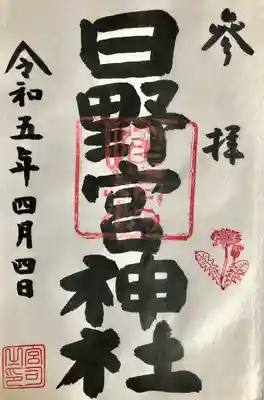 参拝
日野宮神社
令和五年四月四日